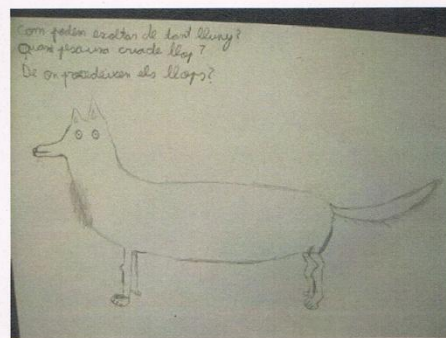 com poden escoltar de tant lluny?
Quan pesa una cria de llop?
De on procedeixen els llops?